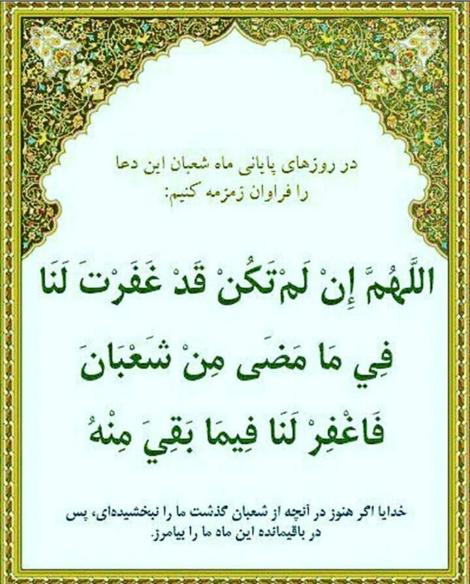 در روزهای پایانی ماه شعبان این دعا
را فراوان زمزمه کنیم:
اللَّهُمَّ إِنْ لَمْ تَكُنْ قَدْ غَفَرْتَ لَنَا
فِي مَا مَضَى مِنْ شَعْبَانَ
فَاغْفِرْ لَنَا فِيمَا بَقِيَ مِنْهُ
خدایا اگر هنوز در آنچه از شعبان گذشت ما را نبخشیده‌ای، پس
در باقیمانده این ماه ما را بیامرز.